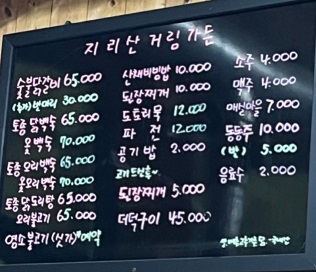 지리산거림가든
숯불닭갈비 65.000
(추가) 반마리 30.000
토종 닭백숙 65.000
옻백숙 70.000
토종 오리백숙 65.000
옻오리백숙 70.000
토종 닭도리탕 65.000
오리불고기 65.000
염소불고기 (싯가)*예약
산채비빔밥 10.000
된장찌개 10.000
도토리묵 12.000
파전 12.000
공기밥 2.000
고기드신분
된장찌개 5.000
더덕구이 45.000
소주 4.000
맥주 4.000
매실마을 7.000
동동주 10.000
(반) 5.000
음료수 2.000